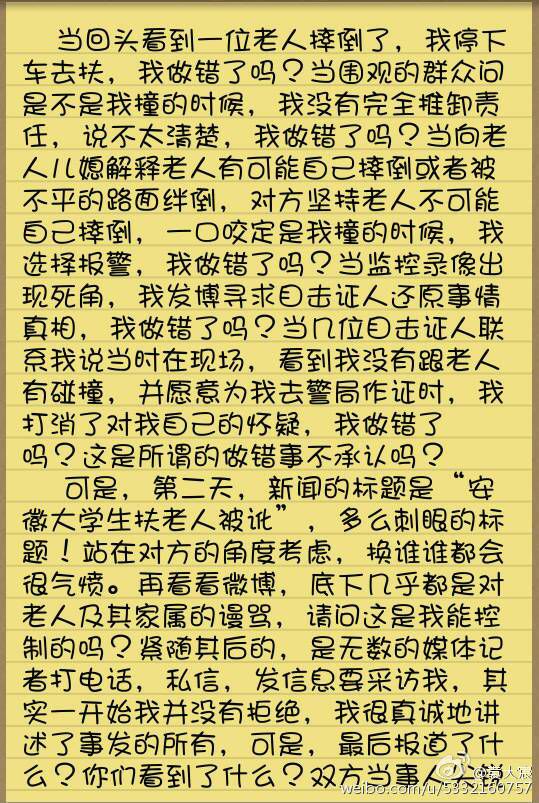 当回头看到一位老人摔倒了，我停下
车去扶，我做错了吗？当围观的群众问
是不是我撞的时候，我没有完全推卸责
任，说不太清楚，我做错了吗？当向老
人儿媳解释老人有可能自己摔倒或者被
不平的路面绊倒，对方坚持老人不可能
自己摔倒，一口咬定是我撞的时候，我
选择报警，我做错了吗？当监控录像出
现死角，我发博寻求目击证人还原事情
真相，我做错了吗？当几位目击证人联
系我说当时在现场，看到我没有跟老人
有碰撞，并愿意为我去警局作证时，我
打消了对我自己的怀疑，我做错了
吗？这是所谓的做错事不承认吗？
可是，第二天，新闻的标题是“安
徽大学生扶老人被讹”，多么刺眼的标
题！站在对方的角度考虑，换谁谁都会
很气愤。再看看微博，底下几乎都是对
老人及其家属的谩骂，请问这是我能控
制的吗？紧随其后的，是无数的媒体记
者打电话，私信，发信息要采访我，其
实一开始我并没有拒绝，我很真诚地讲
述了事发的所有，可是，最后报道了什
么？你们看到了什么？双方当事人
weibo.com/u/5332160757